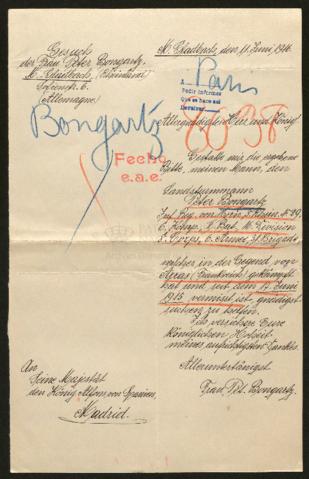 Gesuch
der Frau Peter Bongartz,
M. Gladbach, (Rheinland)
6.
(Allemagne)
M. Gladbach, den 11. Juni 1916.
Bongartz
Paris
A
Pedir informes
Que se hace así
Devolver
Fecho
e.a.e.
Allergnädigster Herr und König
Gestatte mir die ergebene
Bitte, meinen Mann, den
Landsturmmann
Peter Bongartz
Inf. Reg. von Horn, 3. Rhein. № 29,
6. Komp. 2. Bat. 16. Division
8. Corps, 6. Armee, 31. Brigade,
welcher in der Gegend von
Arras (Frankreich) gekämpft
hat und seit dem 17. Juni
1915 vermisst ist, gnädigst
suchen zu helfen.
Ich versichere Eure
Königlichen Hoheit
meines aufrichtigsten Dankes.
Alleruntertänigst
Frau Pet. Bongartz.
An
Seine Majestät
den König Alfons von Spanien,
Madrid.